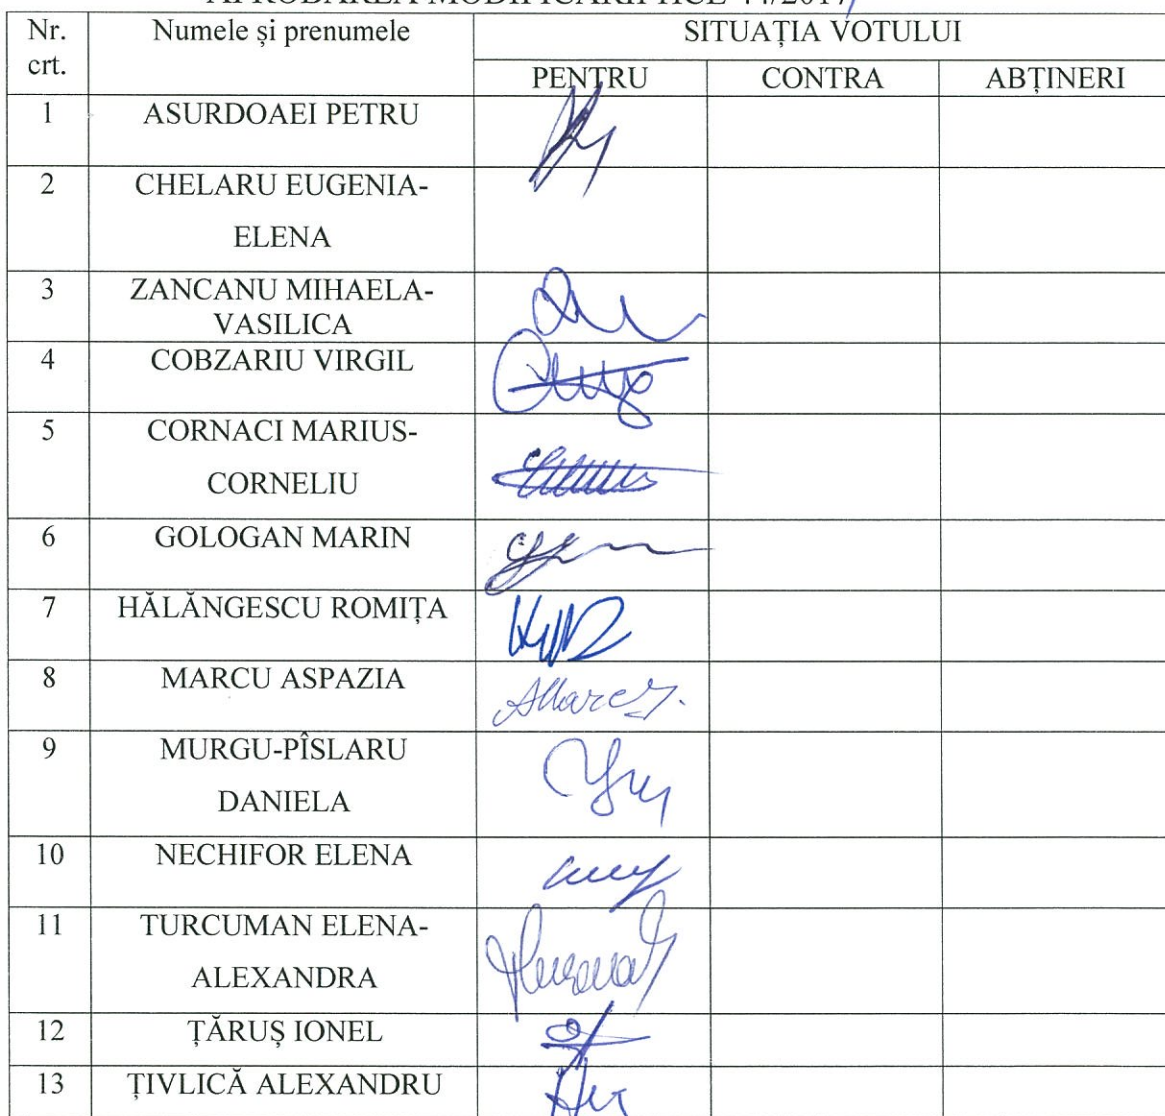 APROBAREA MODIFICĂRII HCL 44/2017
Nr. crt. Numele și prenumele SITUAȚIA VOTULUI
PENTRU CONTRA ABȚINERI
1 ASURDOAEI PETRU
2 CHELARU EUGENIA-
ELENA
3 ZANCANU MIHAELA-
VASILICA
4 COBZARIU VIRGIL
5 CORNACI MARIUS-
CORNELIU
6 GOLOGAN MARIN
7 HĂLĂNGESCU ROMIȚA
8 MARCU ASPAZIA
9 MURGU-PÎSLARU
DANIELA
10 NECHIFOR ELENA
11 TURCUMAN ELENA-
ALEXANDRA
12 ȚĂRUȘ IONEL
13 ȚIVLICĂ ALEXANDRU